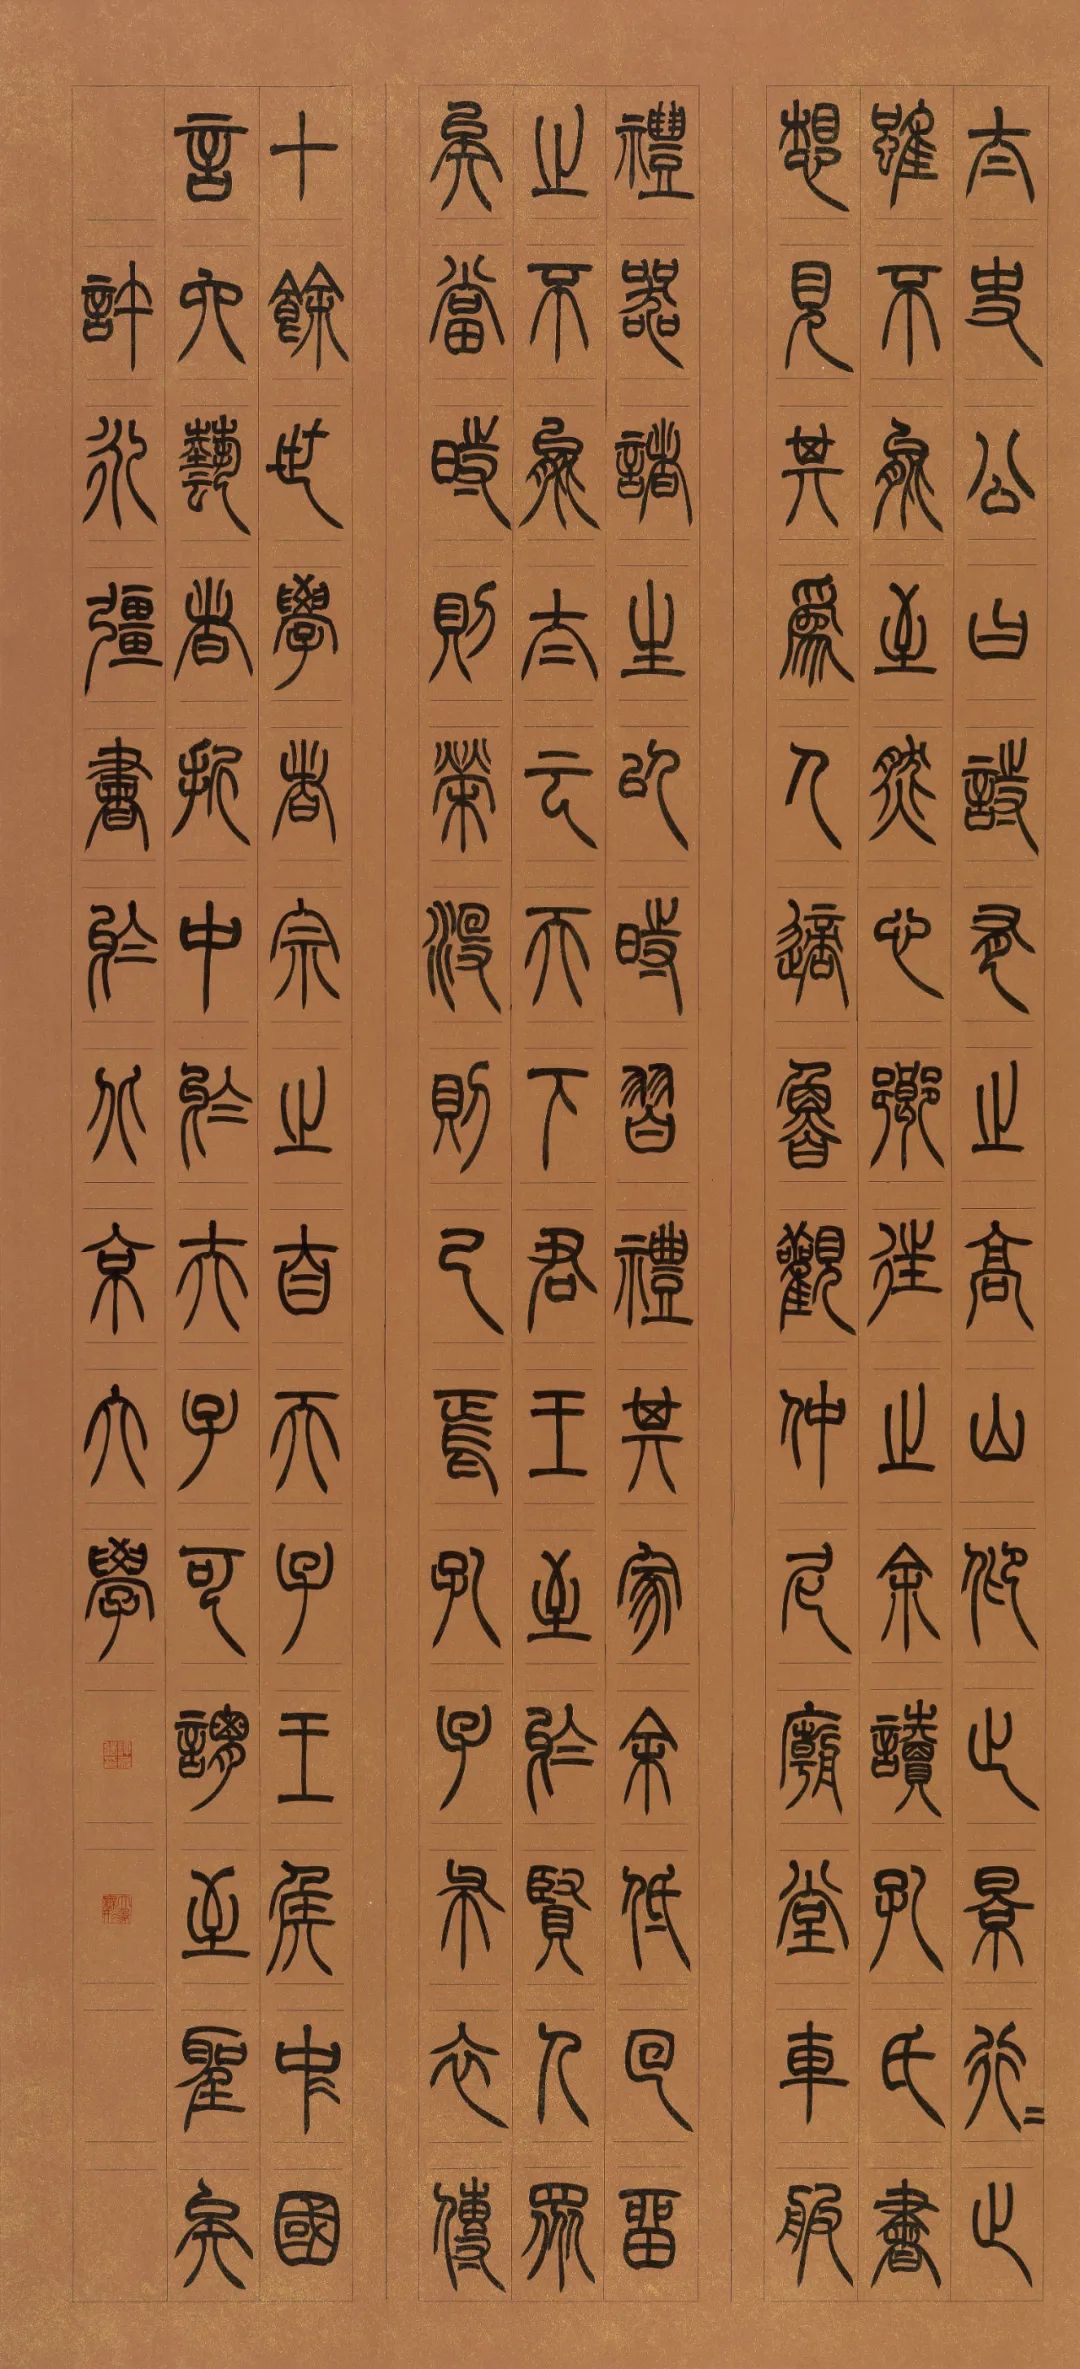 太史公曰詩有之高山仰止景行=止
雖不能至然心鄉往之余讀孔氏書
想見其為人適魯觀仲尼廟堂車服
禮器諸生以時習禮其家余低回留
之不能去云天下君王至於賢人眾
矣當時則榮沒則已焉孔子布衣傳
十餘世學者宗之自天子王侯中國
言六藝者折中於夫子可謂至聖矣
許永彊書於北京大學